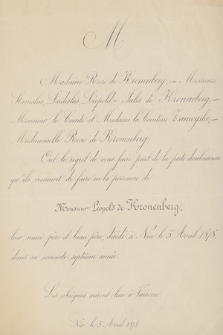 M
Madame Rose de Kronenberg, — Messieurs
Stanislas, Ladislas, Léopold-Jules de Kronenberg, —
Monsieur le Comte et Madame la Comtesse Zamoyska, —
Mademoiselle Rose de Kronenberg.
Ont le regret de vous faire part de la perte douloureuse
qu'ils viennent de faire en la personne de
Monsieur Léopold de Kronenberg,
leur mari, père et beau-père, décédé à Nice le 5 Avril 1878,
dans sa soixante-septième année.
Les obsèques auront lieu à Varsovie.
Nice le 5 Avril 1878.